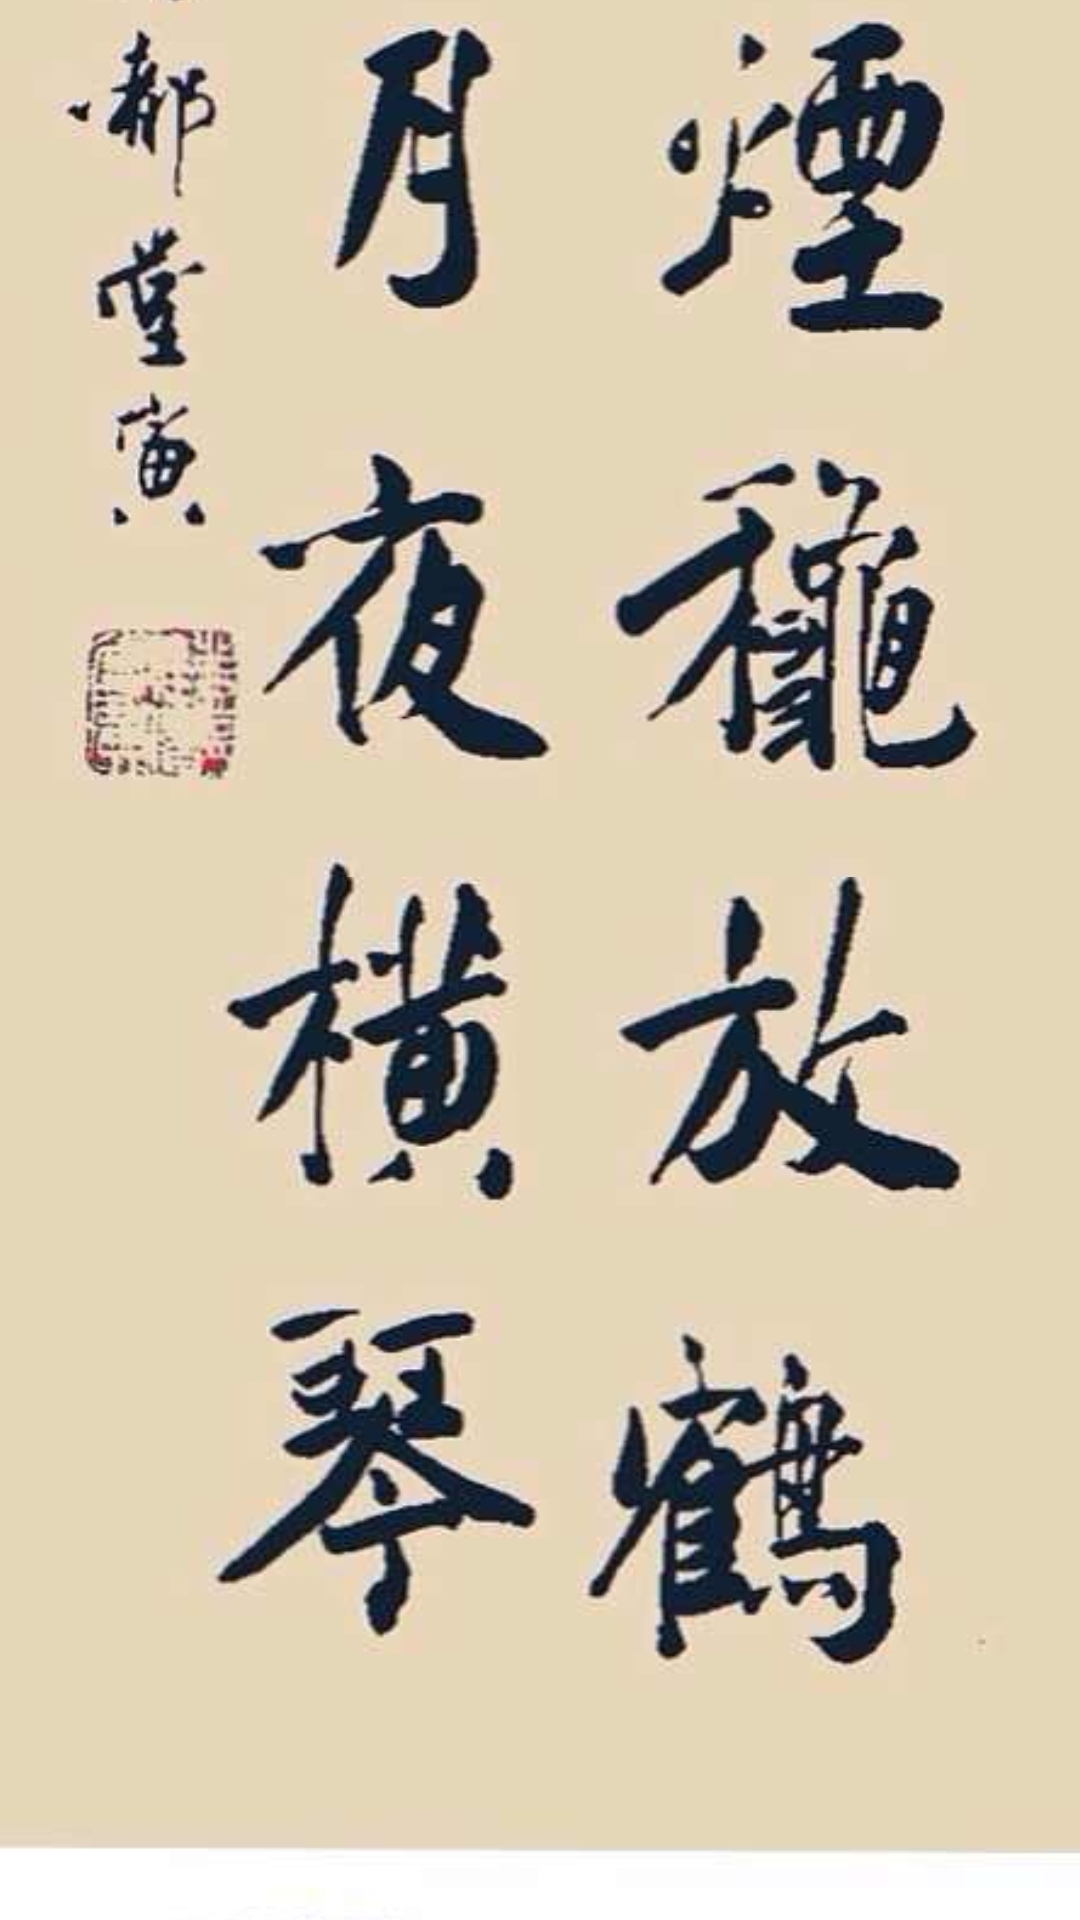 煙龝放鶴
月夜橫琴
堂寅